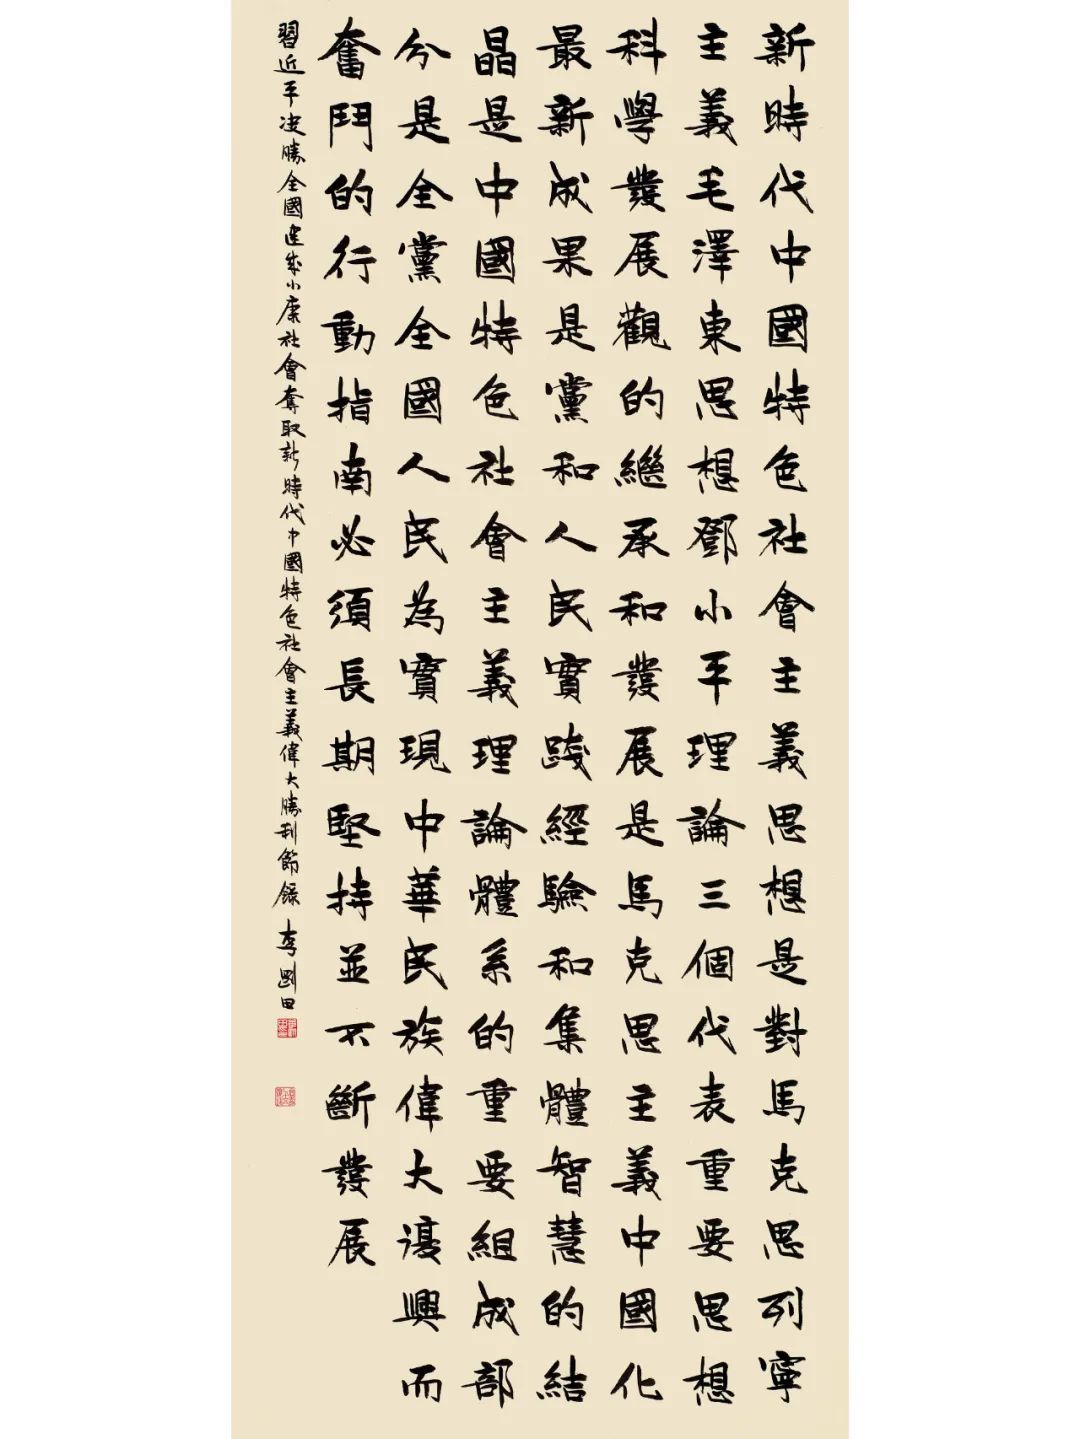 新時代中國特色社會主義思想是對馬克思列寧
主義毛澤東思想鄧小平理論三個代表重要思想
科學發展觀的繼承和發展是馬克思主義中國化
最新成果是黨和人民實踐經驗和集體智慧的結
晶是中國特色社會主義理論體系的重要組成部
分是全黨全國人民為實現中華民族偉大復興而
奮鬥的行動指南必須長期堅持並不斷發展
習近平決勝全國建成小康社會奪取新時代中國特色社會主義偉大勝利節錄 李剛田